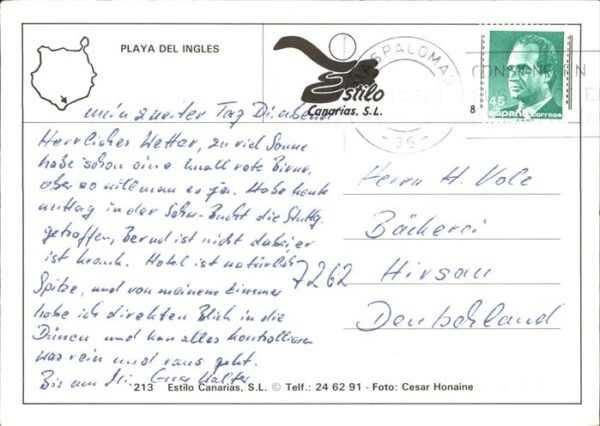 PLAYA DEL INGLES
Estilo
Canarias, S.L.
MASPALOMAS
35
CONSIGNE
EN
8
45
españa correos
mein zweiter Tag Di abend
Herrliches Wetter, zu viel Sonne
habe schon eine knall rote Birne,
aber so will man es ja. Habe heute
mittag in der Bucht die Stuttg.
getroffen, Bernd ist nicht dabei er
ist krank. Hotel ist natürlich
Spitze, und von meinem Zimmer
habe ich direkten Blick in die
Dünen und kann alles kontrollieren
was rein und raus geht.
Bis am Di. Euer Walter
Herrn H. Volz
Bäckerei
7262 Hirsau
Deutschland
213 Estilo Canarias, S.L. © Telf.: 24 62 91 - Foto: Cesar Honaine